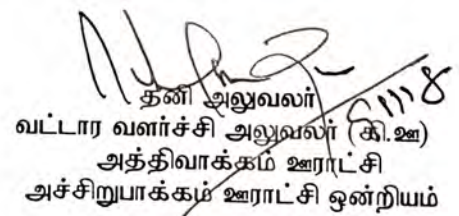 தனி அலுவலர்
வட்டார வளர்ச்சி அலுவலர் (கி.ஊ)
அத்திவாக்கம் ஊராட்சி
அச்சிறுபாக்கம் ஊராட்சி ஒன்றியம்